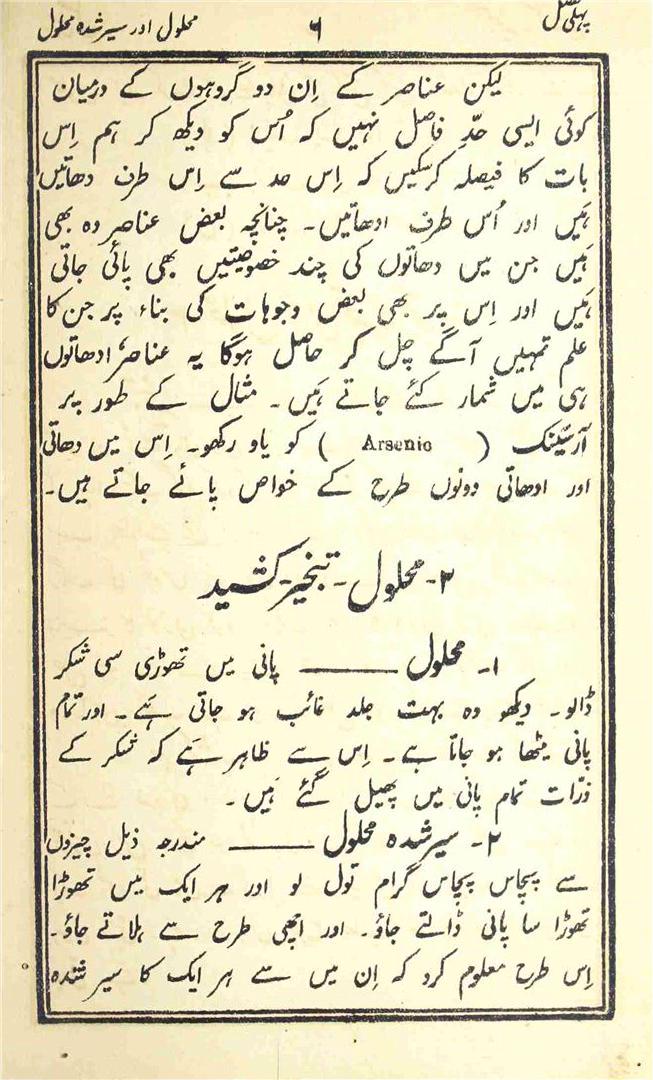 پہلی فصل ۶ محلول اور سیر شدہ محلول
لیکن عناصر کے اِن دو گروہوں کے درمیان
کوئی ایسی حدِّ فاصل نہیں کہ اُس کو دیکھ کر ہم اِس
بات کا فیصلہ کرسکیں کہ اِس حد سے اِس طرف دھاتیں
ہَیں اور اُس طرف ادھاتیں۔ چنانچہ بعض عناصر وہ بھی
ہَیں جن میں دھاتوں کی چند خصوصیتیں بھی پائی جاتی
ہَیں اور اِس پر بھی بعض وجوہات کی بناء پر جن کا
علم تمہیں آگے چل کر حاصل ہوگا یہ عناصر، ادھاتوں
ہی میں شمار کئے جاتے ہَیں۔ مثال کے طور پر
آرسَینِک ( Arsenic ) کو یاد رکھو۔ اِس میں دھاتی
اور ادھاتی دونوں طرح کے خواص پائے جاتے ہیں۔
۲۔ محلول۔ تبخیر۔ کشید
۱۔ محلول ——— پانی میں تھوڑی سی شکر
ڈالو۔ دیکھو وہ بہت جلد غائب ہو جاتی ہَے۔ اور تمام
پانی میٹھا ہو جاتا ہے۔ اِس سے ظاہر ہَے کہ شکر کے
ذرّات تمام پانی میں پھیل گئے ہَیں۔
۲۔ سیر شدہ محلول ——— مندرجہ ذیل چیزوں
سے پچاس پچاس گرام تول لو اور ہر ایک میں تھوڑا
تھوڑا سا پانی ڈالتے جاؤ۔ اور اچھی طرح سے ہلاتے جاؤ۔
اِس طرح معلوم کرو کہ اِن میں سے ہر ایک کا سیر شدہ